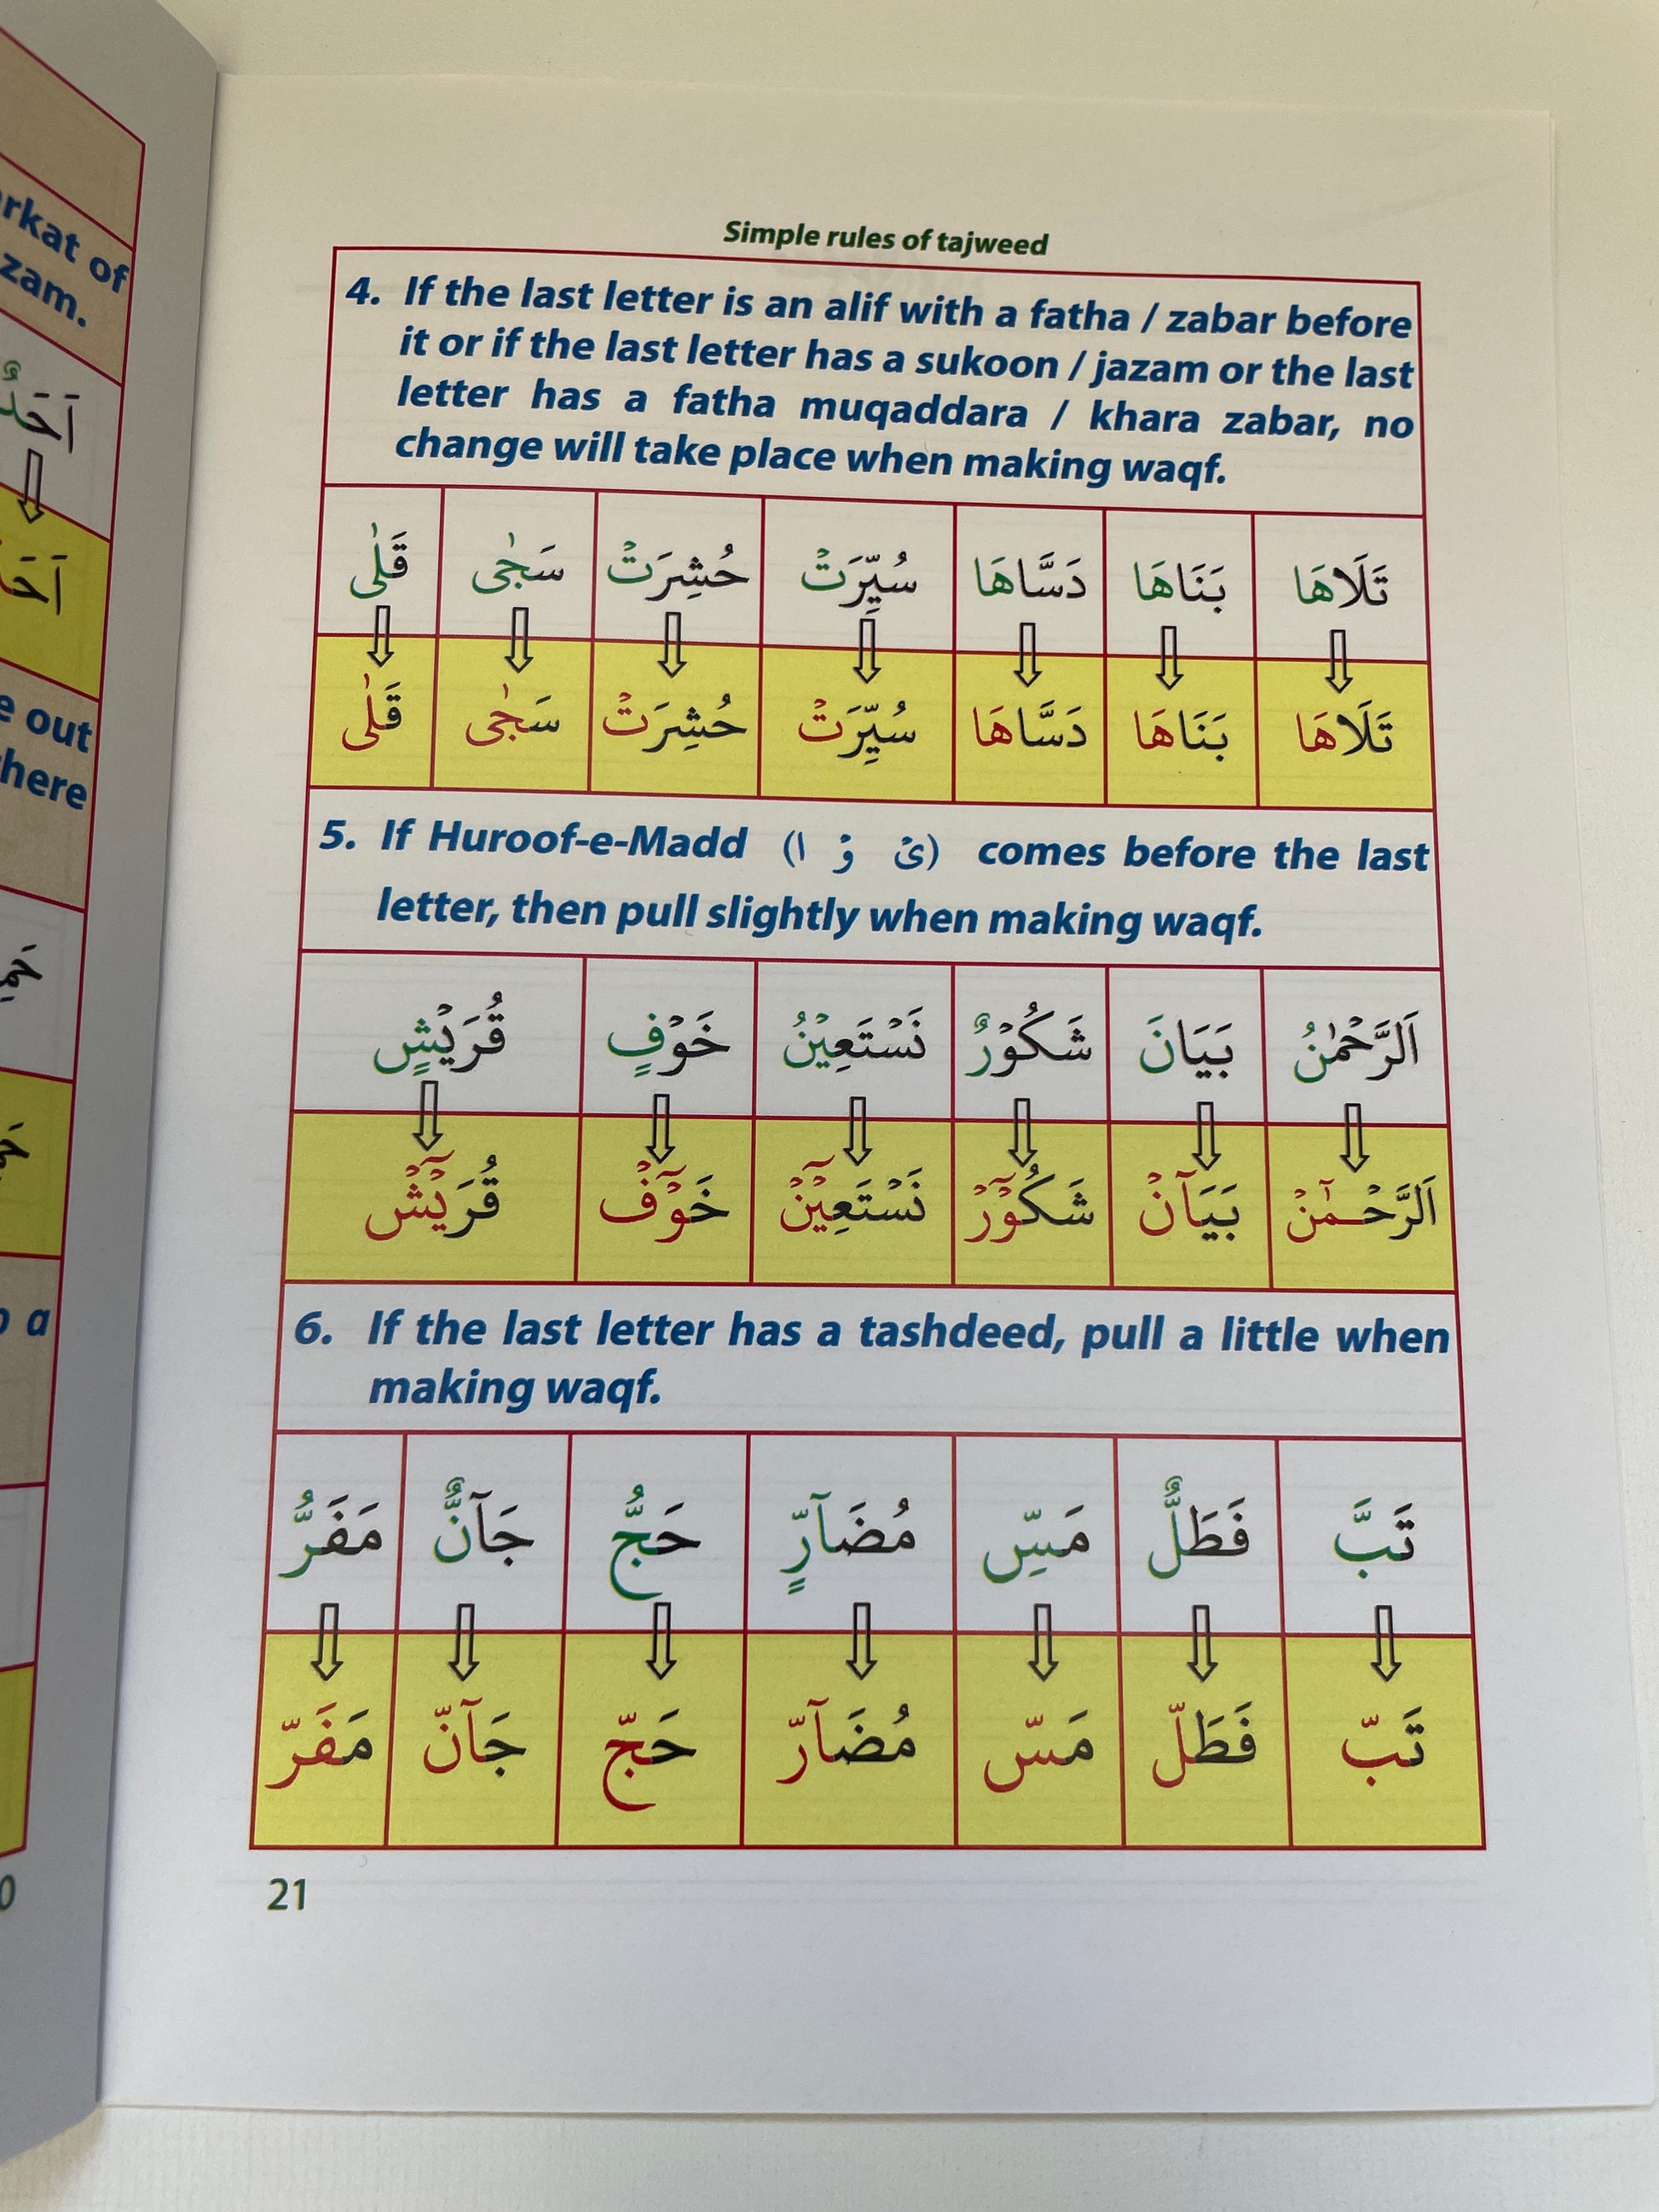 rkat of
zam.
اَحَدٌ
اَحَدْ
e out
here
a
Simple rules of tajweed
4. If the last letter is an alif with a fatha / zabar before
it or if the last letter has a sukoon / jazam or the last
letter has a fatha muqaddara / khara zabar, no
change will take place when making waqf.
تَلَاهَا بَنَاهَا دَسَّاهَا سُيِّرَتْ حُشِرَتْ سَجٰى قَلٰى
تَلَاهَا بَنَاهَا دَسَّاهَا سُيِّرَتْ حُشِرَتْ سَجٰى قَلٰى
5. If Huroof-e-Madd (ا وْ ىْ) comes before the last
letter, then pull slightly when making waqf.
اَلرَّحْمٰنُ بَيَانَ شَكُوْرٌ نَسْتَعِيْنُ خَوْفٍ قُرَيْشٍ
اَلرَّحْمٰٓنْ بَيَآنْ شَكُوْٓرْ نَسْتَعِيْٓنْ خَوْٓفْ قُرَيْٓشْ
6. If the last letter has a tashdeed, pull a little when
making waqf.
تَبَّ فَطَلٌّ مَسِّ مُضَآرٍّ حَجُّ جَآنٌّ مَفَرُّ
تَبّ فَطَلّ مَسّ مُضَآرّ حَجّ جَآنّ مَفَرّ
21